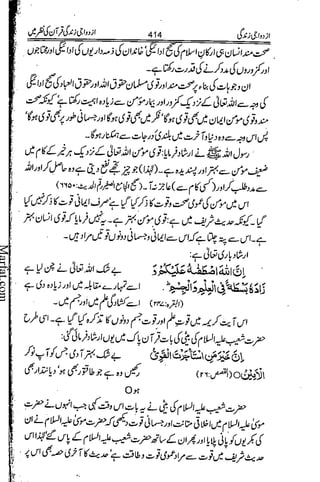 ازدواجی زندگی 414 ازدواجی زندگی قرآن کی نظر میں
صحت مند انسان ہی ارکانِ اسلام کی صحیح ادائیگی، خاندان کی ذمہ داریوں کی ادائیگی اور محتاجوں
اور کمزوروں کی مدد کرنے کی قدرت رکھتا ہے۔
ان وجوہات کی بناء پر صحت مند اور قوی مسلمان حقوق اللہ اور حقوق العباد کی صحیح ادائیگی
کی وجہ سے اللہ تعالیٰ کے نزدیک کمزور اور بیمار مؤمن سے زیادہ اہمیت رکھتا ہے کیونکہ صحت
مند و قوی مؤمن ایمان میں بھی قوی ہوگا، نظر میں بھی قوی ہوگا اور جسمانی طور پر بھی قوی ہوگا،
پس اس وجہ سے وہ دنیا و آخرت میں بلندی درجات سے ہمکنار ہوگا۔
رسول اللہ ﷺ نے ارشاد فرمایا: قوی مؤمن اللہ تعالیٰ کے نزدیک ہر خیر کے کام میں
ضعیف مؤمن سے بہتر اور پسندیدہ ہے۔ (لہٰذا) جو چیز تجھے نفع دیتی ہے وہ حاصل کر اور اللہ
سے مدد طلب کر اور (کسی کام سے) عاجز نہ آ۔ (صحیح الجامع الصغیر رقم الحدیث: ۶۶۵۰)
اس میں مؤمن کی عمومی صحت و قوت کا ذکر کیا گیا ہے صرف ایمانی قوت کا ذکر نہیں کیا
گیا۔ کیونکہ حدیث شریف میں ہے: قوی مؤمن بہتر ہے۔ یہ نہیں فرمایا کہ قوی انسان بہتر
ہے۔ اس سے پتہ چلتا ہے کہ اس سے ایمانی و جسمانی دونوں قوتیں مراد ہیں۔
ارشاد باری تعالیٰ ہے:
إِنَّ اللهَ اصْطَفٰىهُ عَلَيْكُمْ وَ بے شک اللہ تعالیٰ نے چن لیا ہے
زَادَهٗ بَسْطَةً فِي الْعِلْمِ وَ الْجِسْمِ اسے تمہارے مقابلہ میں اور زیادہ دی ہے
(البقرہ: ۲۴۷) اسے کشادگی علم میں اور جسم میں۔
اس آیت کریمہ میں قوتِ علم اور قوتِ جسم دونوں کا تذکرہ کیا گیا ہے۔ اسی طرح
حضرت شعیب علیہ السلام کی بیٹی کی بات قرآن پاک میں یوں ارشاد فرمائی گئی:
إِنَّ خَيْرَ مَنِ اسْتَأْجَرْتَ الْقَوِيُّ بے شک بہتر آدمی جس کو آپ نوکر
الْأَمِيْنُ (القصص: ۲۶) رکھیں وہ ہے جو طاقتور بھی ہو دیانتدار بھی
ہو
حضرت شعیب علیہ السلام کی بیٹی نے یہ بات اس وقت کہی جب انہوں نے حضرت
موسیٰ علیہ السلام میں اخلاقی متانت اور جسمانی قوت دیکھی کہ حضرت موسیٰ علیہ السلام نے ان
کی بکریوں کو پانی پلایا اور پھر ان کے ساتھ حضرت شعیب علیہ السلام کے پاس گئے لہٰذا اس
حدیث شریف میں قوت سے مراد عمومی قوت و طاقت ہے حدیث کا آخری حصہ بھی اس پر
Marfat.com